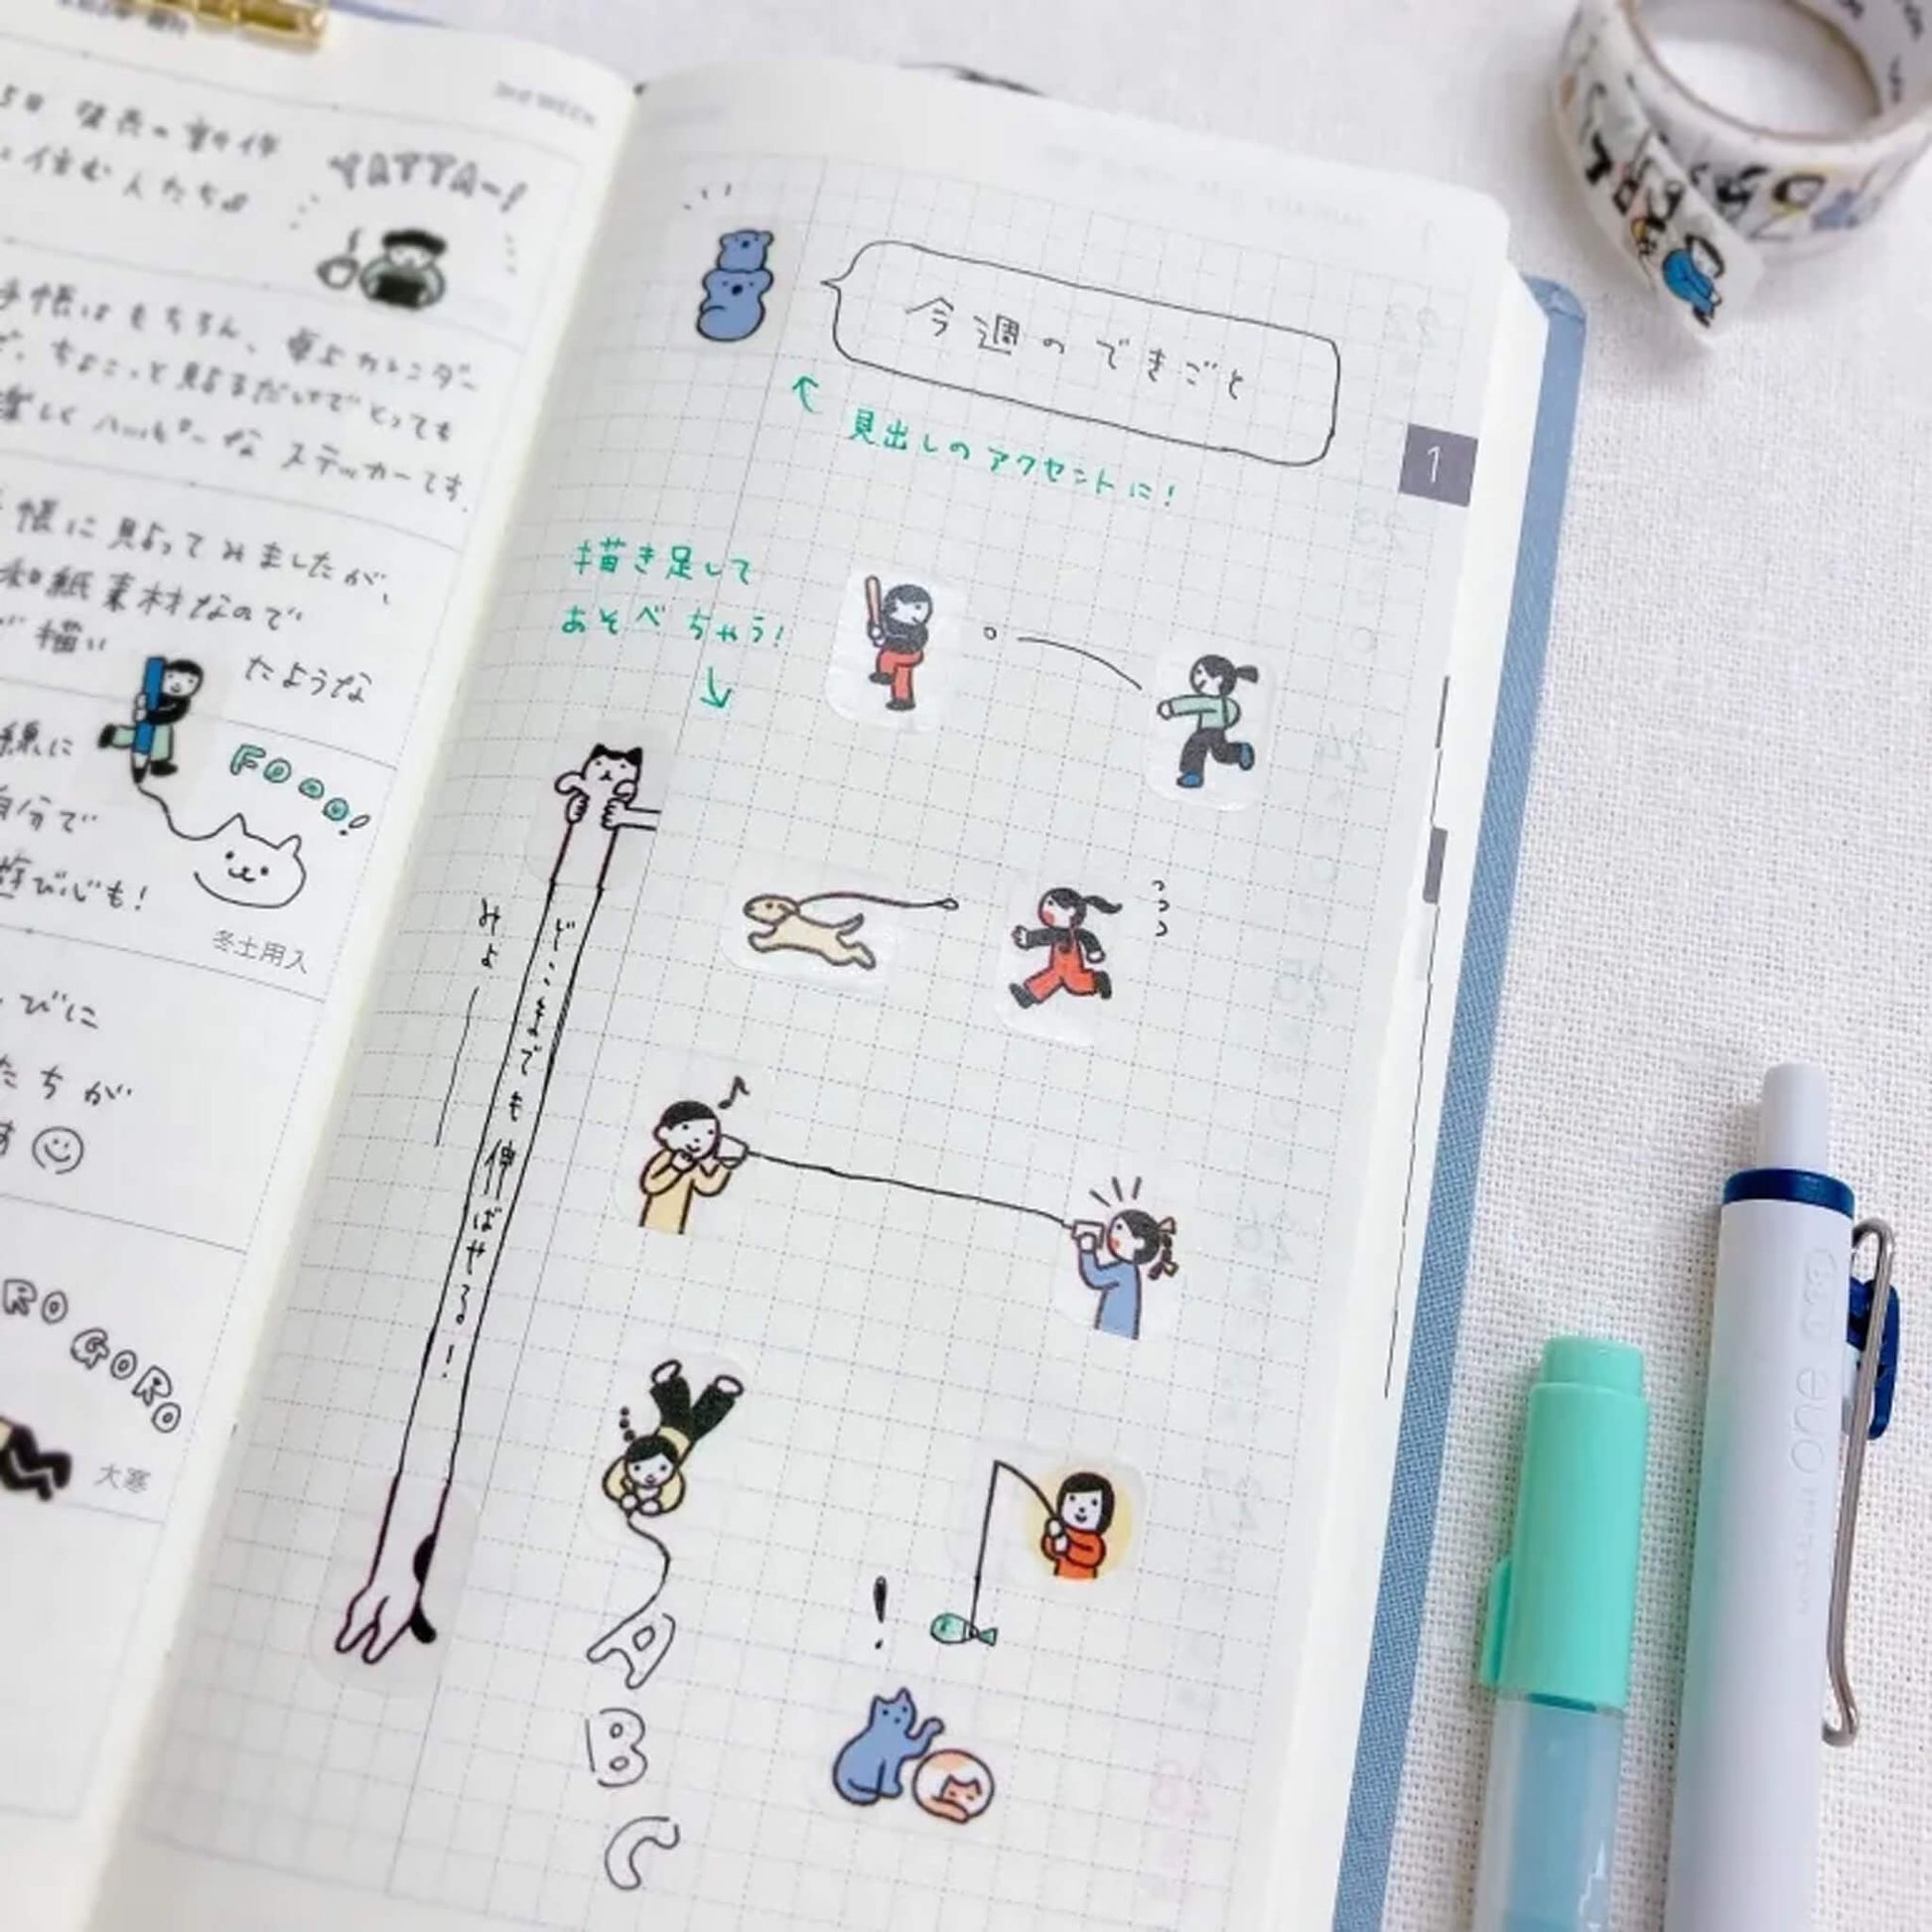 2nd WEEK
5日 発売の新作
に住む人たち
YATTA〜!
手帳はもちろん、卓上カレンダー
ど、ちょこっと貼るだけでとっても
楽しくハッピーな ステッカーです。
手帳に貼ってみましたが、
和紙素材なので
が描い
たような
線に
自分で
遊び心も!
FOOO!
冬土用入
びに
たちが
す
RO GORO
大寒
今週のできごと
見出しのアクセントに!
1
描き足して
あそべちゃう!
みょ——
どこまでも伸ばせる!
A
B
C
!
uni one